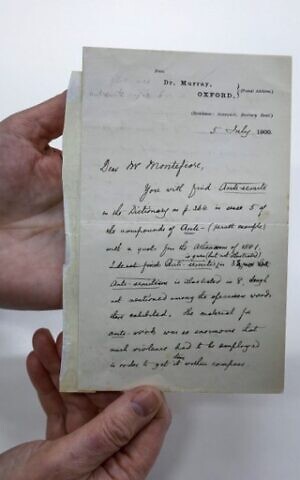 From
Dr. Murray,
OXFORD.
(Postal Address)
5 July, 1900.
Dear Mr Montefiore,
You will find Anti-semite
in the Dictionary on p. 364 in sense 5 of
the compounds of Anti- (seventh example)
with a quote from the Athenæum of 1881.
is given (but not illustrated)
Anti-semitism is illustrated in 8, though
not mentioned among the specimen words
there exhibited. The material for
anti- words was so enormous that
much violence had to be employed
in order to get it within compass.